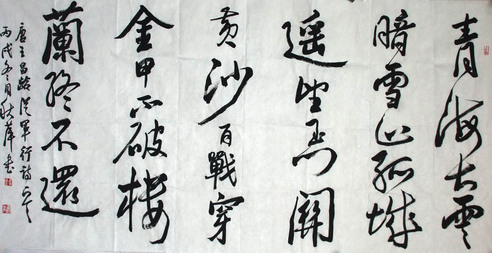 青海长雲
暗雪山孤城
遥望玉門關
黄沙百戰穿
金甲不破楼
蘭終不還
唐王昌龄從軍行詩
丙戌冬月秋萍書